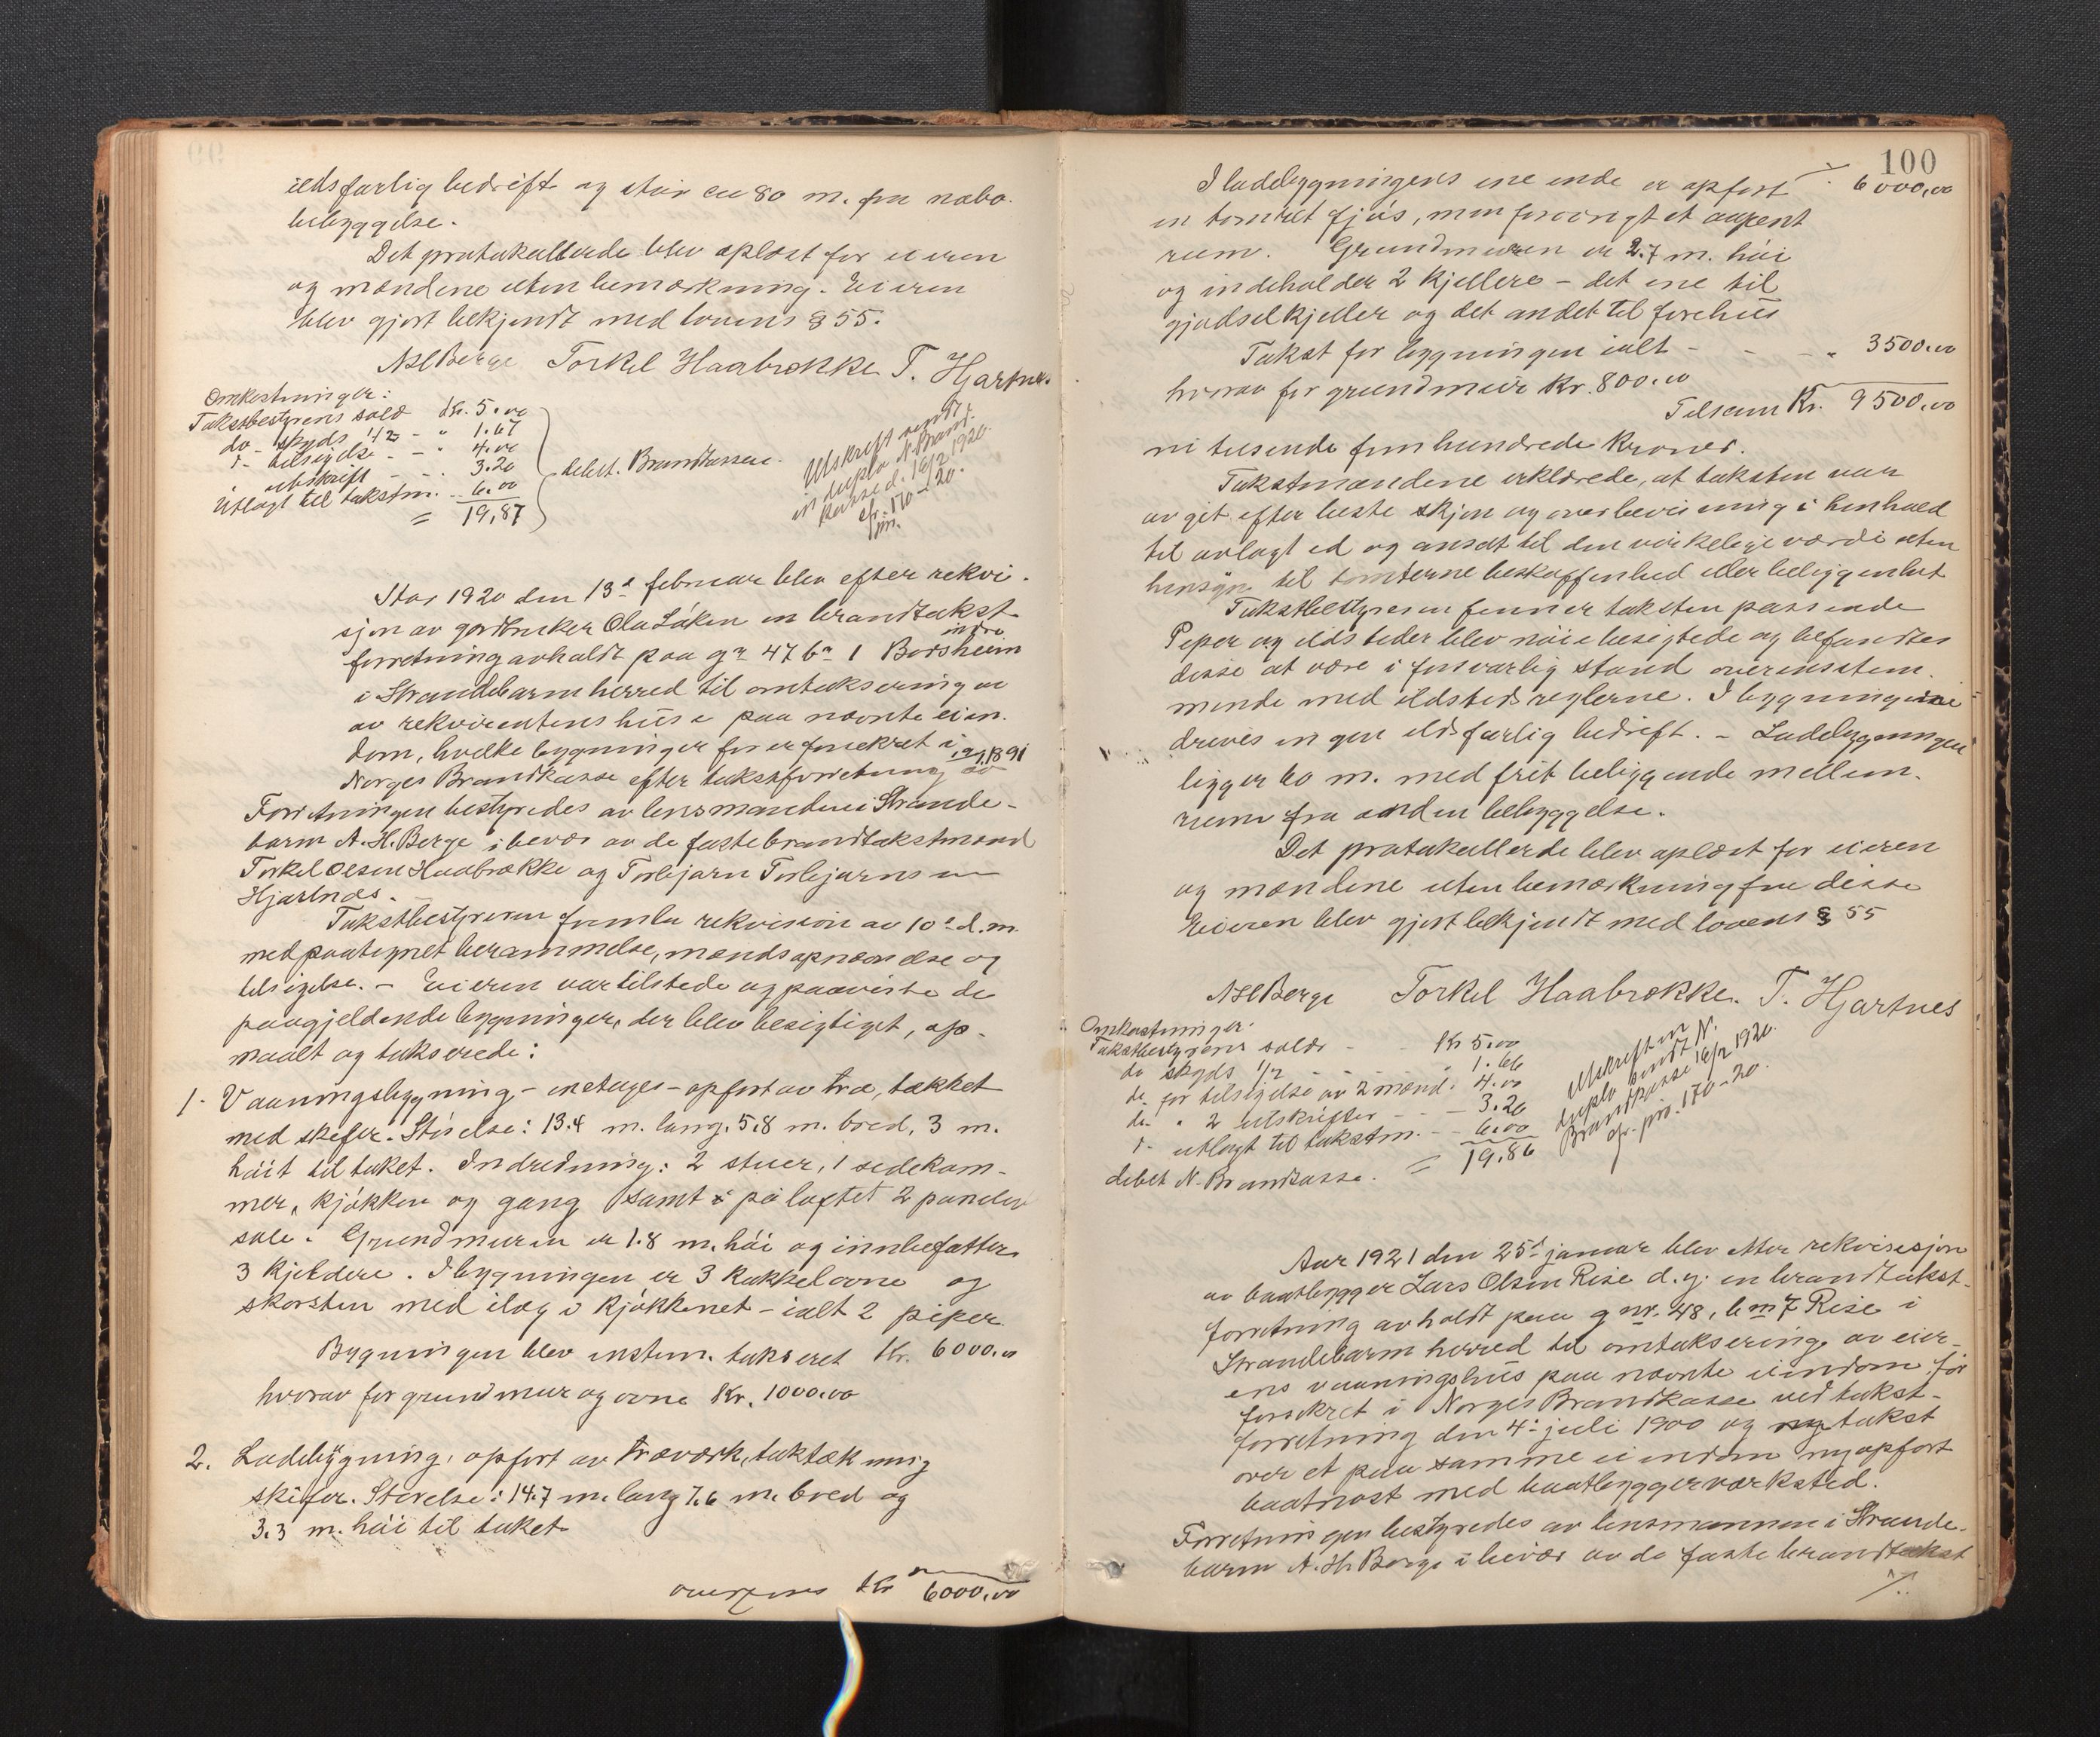 ildsfarlig bedrift og står ca 80 m. fra nabo.
bebyggelse.
Det protokollerde blev oplæst for eieren
og mændene uten bemærkning. Eieren
blev gjort bekjendt med lovens § 55.
A H Berge Torkel Haabrække T. Hjartnes
Omkostninger:
Takstbestyrerens salær Kr. 5.00
do - skyds 1/2 - " 1.67
d- tilsigelse - - " 4.00
" utskrift - - - 3.20
Utlagt til takstm. - 6.00
= 19,87
debet. Brandkassen.
Utskrift sendt
in duplo N. Brand-
kasse d. 16/2 1920.
cfr. 170-20.
jnr.
Aar 1920 den 13de februar blev efter rekvi-
sjon av gardbruker Ola Låken en brandtakst-
forretning avholdt paa gn 47 bn 1 indre Borsheim
i Strandebarm herred til omtaksering av
av rekvirentens huse paa nævnte eien-
dom, hvilke bygninger før er forsikret i
Norges Brandkasse efter takstforretning av 19/9 1891
Forretningen bestyredes av lensmanden i Strande-
barm A. H. Berge i bevær av de faste brandtakstmænd
Torkel Olsen Haabrække og Torbjørn Torbjørnsen
Hjartnæs.
Takstbestyreren fremla rekvision av 10de d.m.
med paategnet berammelse, mændsopnævnelse og
tilsigelse. - Eieren var tilstede og paaviste de
paagjeldende bygninger, der blev besigtiget, op-
maalt og takserede:
1. Vaaningsbygning - enetages - opført av træ, tækket
med skifer. Størelse: 13.4 m. lang, 5.8 m. bred, 3 m.
høit til taket. Indredning: 2 stuer, 1 sidekam-
mer, kjøkken og gang samt på loftet 2 panelev
sale. Grundmuren er 1.8 m. høi og innbefatter
3 kjeldere. I bygningen er 3 kakkelovne og
skorsten med ilæg i kjøkkenet - ialt 2 piper.
Bygningen blev enstem. takseret Kr. 6000.00
hvorav for grundmur og ovne Kr. 1000.00
2. Ladebygning, opført av træværk, taktækning
skifer. Størelse: 14.7 m. lang 7.6 m. bred og
3.3 m. høi til taket
overføres Kr 6000.00
100
I ladebygningens ene ende er opført ./. 6000.00
en tømret fjøs, men forøvrigt et aapent
rum. Grundmuren er 2.7 m. høi
og indeholder 2 kjellere - det ene til
gjødselkjeller og det andet til forehus
Takst for bygningen ialt - - - " 3500.00
hvorav for grundmur Kr. 800.00
Tilsam Kr. 9500.00
ni tusende fem hundrede Kroner.
Takstmændene erklærede, at taksten var
avgit efter beste skjøn og overbevisning i henhold
til avlagt ed og ansat til den virkelige værdi uten
hensyn til tomterne beskaffenhed eller beliggenhet
Takstbestyreren finner taksten passende
Peper og ildsteder blev nøie besigtede og befandtes
disse at være i forsvarlig stand overensstem-
mende med ildstedsreglerne. I bygningene
drives ingen ildsfarlig bedrift. - Ladebygningen
ligger 60 m. med frit beliggende mellem-
rum fra anden bebyggelse.
Det protokollerde blev oplæst for eieren
og mændene uten bemærkning fra disse
Eieren blev gjort bekjendt med lovens § 55
A H Berge Torkel Haabrække. T. Hjartnes
Omkostninger.
Takstbestyreren salær - - Kr 5.00
do skyds 1/2 - - - " 1.66
do- for tilsigelse av 2 mænd. " 4.00
do- " 2 utskrifter - - - 3.20
d- utlagt til takstm. - - 6.00
= 19.86
debet N. Brandkasse.
Utskrift in
duplo sendt N.
Brandkasse 16/2 1920.
cfr. jnr. 170-20.
Aar 1921 den 25de januar blev etter rekvisisjon
av baatbygger Lars Olsen Rise d.y. en brandtakst-
forretning avholdt paa gnr. 48, bnr 7 Rise i
Strandebarm herred til omtaksering av eier-
ens vaaningshus paa nævnte eiendom, før
forsikret i Norges Brandkasse ved takst-
forretning den 4. juli 1900 og nytakst
over et paa samme eiendom nyopført
baatnøst med baatbyggerværksted.
Forretningen bestyredes av lensmannen i Strande-
barm A. H. Berge i bevær av de faste brandtakst
./.